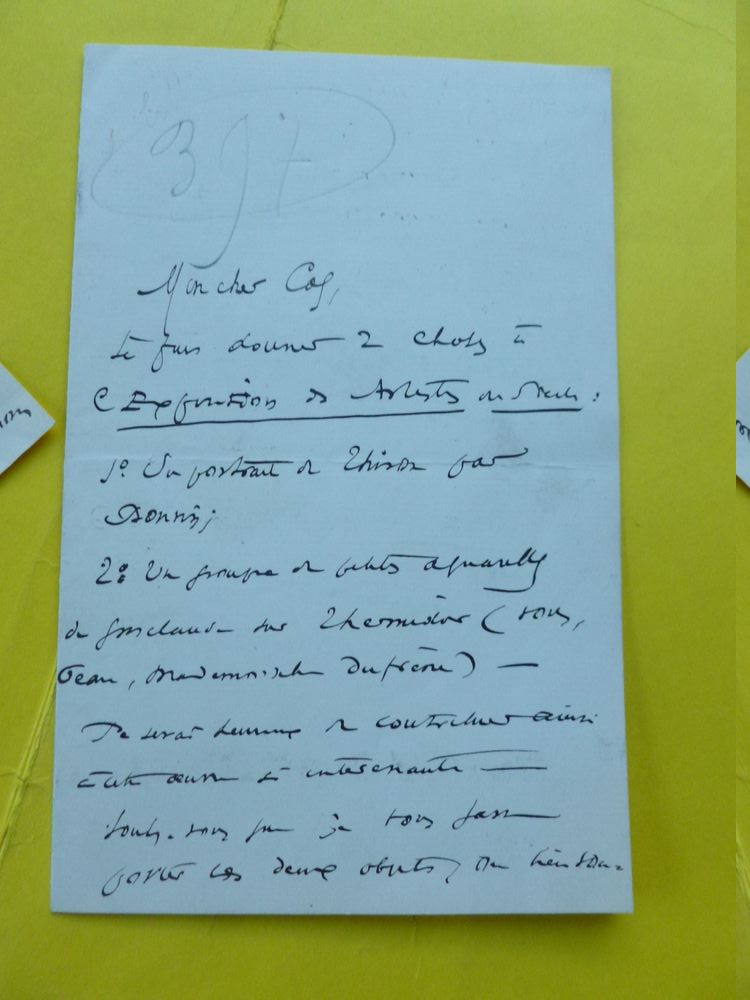 397
Mon cher Coq,
Je puis donner 2 choses à
l'Exposition des Artistes du Siècle :
1º Un portrait de par
2º Un groupe de petites aquarelles
de Gosclaude sur Thermidor (vous,
Jean, Mademoiselle Dufrène) —
Je serai heureux de contribuer ainsi
à cette œuvre si intéressante —
Voulez-vous que je vous fasse
porter ces deux objets, ou viendrez-